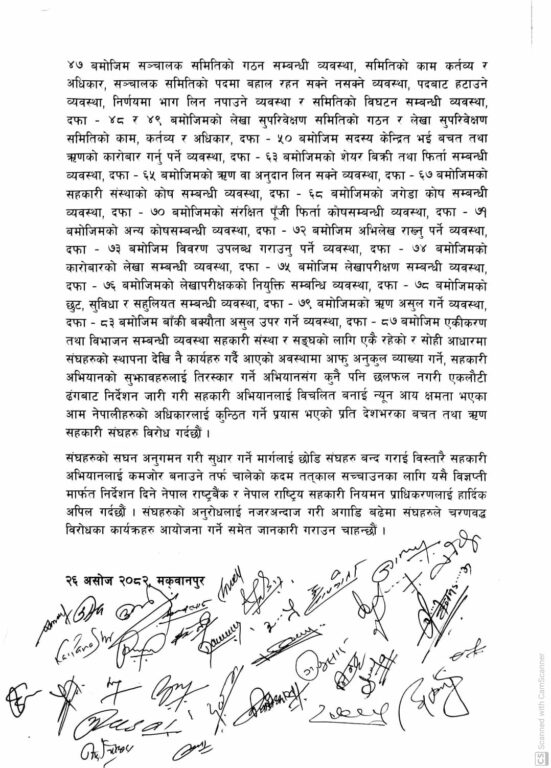 ४७ बमोजिम सञ्चालक समितिको गठन सम्बन्धी व्यवस्था, समितिको काम कर्तव्य र
अधिकार, सञ्चालक समितिको पदमा बहाल रहन सक्ने नसक्ने व्यवस्था, पदबाट हटाउने
व्यवस्था, निर्णयमा भाग लिन नपाउने व्यवस्था र समितिको विघटन सम्बन्धी व्यवस्था,
दफा - ४८ र ४९ बमोजिमको लेखा सुपरिवेक्षण समितिको गठन र लेखा सुपरिवेक्षण
समितिको काम, कर्तव्य र अधिकार, दफा - ५० बमोजिम सदस्य केन्द्रित भई बचत तथा
ऋणको कारोबार गर्नु पर्ने व्यवस्था, दफा - ६३ बमोजिमको शेयर बिक्री तथा फिर्ता सम्बन्धी
व्यवस्था, दफा - ६५ बमोजिमको ऋण वा अनुदान लिन सक्ने व्यवस्था, दफा - ६७ बमोजिमको
सहकारी संस्थाको कोष सम्बन्धी व्यवस्था, दफा - ६८ बमोजिमको जगेडा कोष सम्बन्धी
व्यवस्था, दफा - ७० बमोजिमको संरक्षित पूँजी फिर्ता कोषसम्बन्धी व्यवस्था, दफा - ७१
बमोजिमको अन्य कोषसम्बन्धी व्यवस्था, दफा - ७२ बमोजिम अभिलेख राख्नु पर्ने व्यवस्था,
दफा - ७३ बमोजिम विवरण उपलब्ध गराउनु पर्ने व्यवस्था, दफा - ७४ बमोजिमको
कारोबारको लेखा सम्बन्धी व्यवस्था, दफा - ७५ बमोजिम लेखापरीक्षण सम्बन्धी व्यवस्था,
दफा - ७६ बमोजिमको लेखापरीक्षकको नियुक्ति सम्बन्धि व्यवस्था, दफा - ७८ बमोजिमको
छुट, सुविधा र सहुलियत सम्बन्धी व्यवस्था, दफा - ७९ बमोजिमको ऋण असुल गर्ने व्यवस्था,
दफा - ८३ बमोजिम बाँकी बक्यौता असुल उपर गर्ने व्यवस्था, दफा - ८७ बमोजिम एकीकरण
तथा विभाजन सम्बन्धी व्यवस्था सहकारी संस्था र सङ्घको लागि एकै रहेको र सोही आधारमा
संघहरुको स्थापना देखि नै कार्यहरु गर्दै आएको अवस्थामा आफु अनुकुल व्याख्या गर्ने, सहकारी
अभियानको सुझावहरुलाई तिरस्कार गर्ने अभियानसंग कुनै पनि छलफल नगरी एकलौटी
ढंगबाट निर्देशन जारी गरी सहकारी अभियानलाई विचलित बनाई न्यून आय क्षमता भएका
आम नेपालीहरुको अधिकारलाई कुन्ठित गर्ने प्रयास भएको प्रति देशभरका बचत तथा ऋण
सहकारी संघहरु विरोध गर्दछौं ।
संघहरुको सघन अनुगमन गरी सुधार गर्ने मार्गलाई छोडि संघहरु बन्द गराई विस्तारै सहकारी
अभियानलाई कमजोर बनाउने तर्फ चालेको कदम तत्काल सच्चाउनका लागि यसै विज्ञप्ती
मार्फत निर्देशन दिने नेपाल राष्ट्रबैंक र नेपाल राष्ट्रिय सहकारी नियमन प्राधिकरणलाई हार्दिक
अपिल गर्दछौं । संघहरुको अनुरोधलाई नजरअन्दाज गरी अगाडि बढेमा संघहरुले चरणवद्ध
विरोधका कार्यक्रहरु आयोजना गर्ने समेत जानकारी गराउन चाहन्छौं ।
२६ असोज २०८२ मकवानपुर
CS Scanned with CamScanner